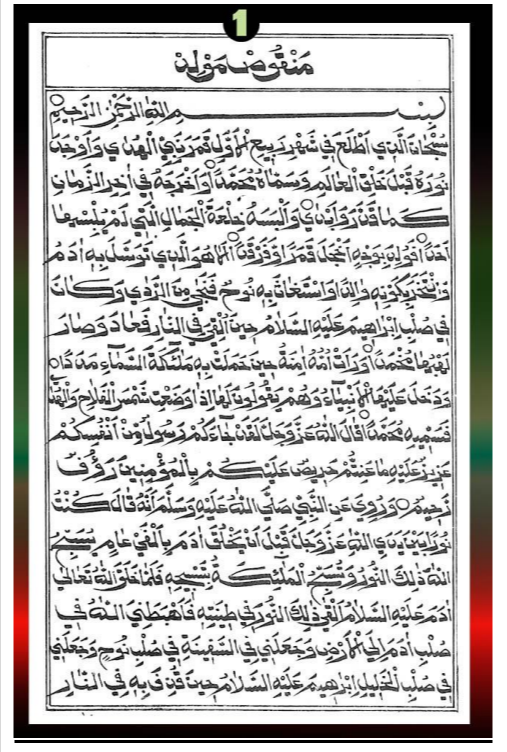 1
مَنْقُوصْ مَوْلِدْ
بِسْمِ اللهِ الرَّحْمٰنِ الرَّحِيمِ
سُبْحَانَ الَّذِي اَطْلَعَ فِي شَهْرِ رَبِيعِ الْاَوَّلِ قَمَرَ نَبِيِّ الْهُدٰي وَاَوْجَدَ
نُورَهُ قَبْلَ خَلْقِ الْعَالَمِ وَسَمَّاهُ مُحَمَّدًا وَاَخْرَجَهُ فِي اٰخِرِ الزَّمَانِ
كَمَا قَدَّرَ وَاَبْدٰي وَاَلْبَسَهُ خِلْعَةَ الْجَمَالِ الَّتِي لَمْ يُلْبِسْهَا
اَحَدًا فَوُلِدَ بِوَجْهٍ اَخْجَلَ قَمَرًا وَفَرْقَدًا اَلَا هُوَ الَّذِي تَوَسَّلَ بِهِ اٰدَمُ
وَافْتَخَرَ بِكَوْنِهِ وَالِدًا وَاسْتَغَاثَ بِهِ نُوحٌ فَنُجِّيَ مِنَ الرَّدٰي وَكَانَ
فِي صُلْبِ اِبْرَاهِيمَ عَلَيْهِ السَّلَامُ حِينَ اُلْقِيَ فِي النَّارِ فَعَادَ وَصَارَ
لَهِيبُهَا مُخْمَدًا وَرَاَتْ اُمُّهُ اٰمِنَةُ حِينَ حَمَلَتْ بِهِ مَلٰئِكَةَ السَّمَاءِ مَدَدًا
وَدَخَلَ عَلَيْهَا الْاَنْبِيَاءُ وَهُمْ يَقُولُونَ لَهَا اِذَا وَضَعْتِ شَمْسَ الْفَلَاحِ وَالْهُدٰي
فَسَمِّيهِ مُحَمَّدًا قَالَ اللهُ عَزَّ وَجَلَّ لَقَدْ جَاءَكُمْ رَسُولٌ مِنْ اَنْفُسِكُمْ
عَزِيزٌ عَلَيْهِ مَا عَنِتُّمْ حَرِيصٌ عَلَيْكُمْ بِالْمُؤْمِنِينَ رَؤُفٌ
رَحِيمٌ وَرُوِيَ عَنِ النَّبِيِّ صَلَّي اللهُ عَلَيْهِ وَسَلَّمَ اَنَّهُ قَالَ كُنْتُ
نُورًا بَيْنَ يَدَيِ اللهِ عَزَّ وَجَلَّ قَبْلَ اَنْ يَخْلُقَ اٰدَمَ بِاَلْفَيْ عَامٍ يُسَبِّحُ
اللهَ ذٰلِكَ النُّورُ وَتُسَبِّحُ الْمَلٰئِكَةُ بِتَسْبِيحِهِ فَلَمَّا خَلَقَ اللهُ تَعَالٰي
اٰدَمَ عَلَيْهِ السَّلَامُ اَلْقٰي ذٰلِكَ النُّورَ فِي طِينَتِهِ فَاَهْبَطَنِي اللهُ فِي
صُلْبِ اٰدَمَ اِلَي الْاَرْضِ وَجَعَلَنِي فِي السَّفِينَةِ فِي صُلْبِ نُوحٍ وَجَعَلَنِي
فِي صُلْبِ الْخَلِيلِ اِبْرَاهِيمَ عَلَيْهِ السَّلَامُ حِينَ قُذِفَ بِهِ فِي النَّارِ